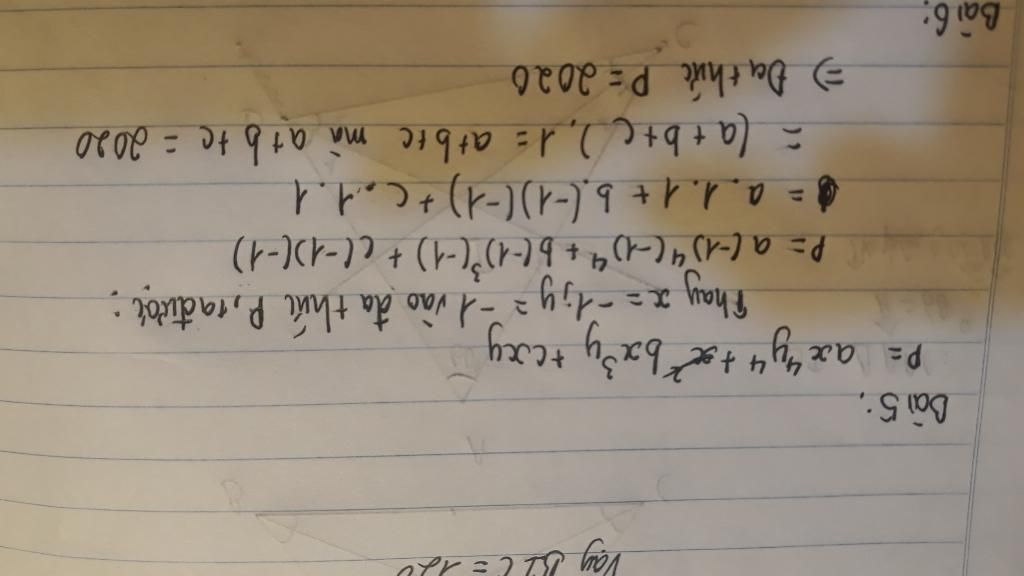 Vậy BIC = 120
B C
A
Bài 5:
P = ax⁴y⁴ + bx³y + cxy
Thay x = -1; y = -1 vào đa thức P, ta được:
P = a(-1)⁴(-1)⁴ + b(-1)³(-1) + c(-1)(-1)
= a.1.1 + b.(-1)(-1) + c.1.1
= (a+b+c).1 = a+b+c mà a+b+c = 2020
=> Đa thức P = 2020
Bài 6: